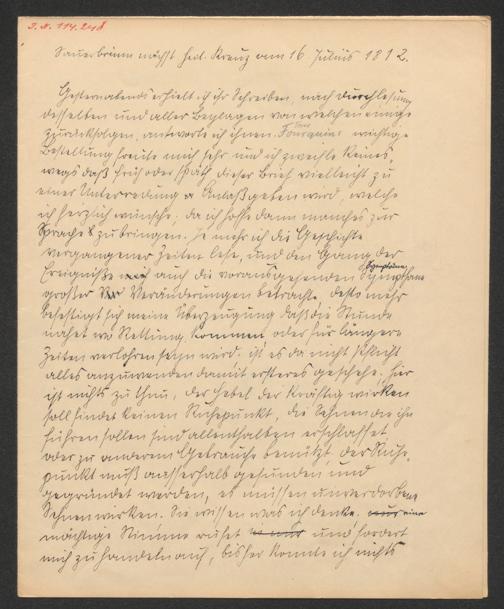 I.N. 114.248
Sauerbrunn nächst heil. Kreuz am 16 Julius 1812.
Gesternabends erhielt ich ihr Schreiben, nach Durchlesung
desselben und aller Beylagen von welchen einige
zurückfolgen, antworte ich ihnen. Tourquins wichtige
Bestellung freute mich sehr und ich zweifle keines-
wegs daß früh oder spät dieser Brief vielleicht zu
einer Unterredung Anlaß geben wird, welche
ich herzlich wünsche; da ich hoffe dann manches zur
Sprache zu bringen. Je mehr ich die Geschichte
vergangener Zeiten lese, und den Gang der
Ereigniße auch die vorausgehenden Symptome
großer Veränderungen betrachte, desto mehr
befestigt sich meine Überzeugung daß die Stunde
nahet wo Rettung kommen oder für längere
Zeiten verlohren seyn wird. ist es da nicht Pflicht
alles anzuwenden damit ersteres geschehe. hier
ist nichts zu thun, der Hebel der kräftig wirken
soll findet keinen Ruhepunkt, die Sehnen die ihn
führen sollen sind allenthalben erschlaffet
oder zu anderem Gebrauche benutzt, der Ruhe-
punkt muß ausserhalb gefunden und
gegründet werden, es müssen unverdorbene
Sehnen wirken. Sie wissen was ich denke, eine
mächtige Stimme rufet und fordert
mich zu handeln auf, bisher konnte ich nichts